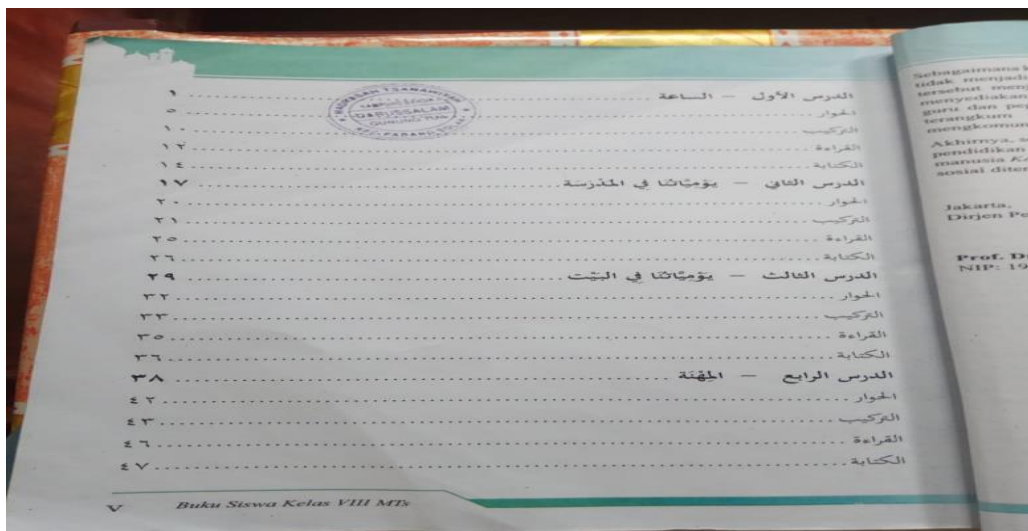 الدرس الأول – الساعة ........ ١
الحوار ........ ٥
التركيب ........ ١٠
القراءة ........ ١٢
الكتابة ........ ١٤
الدرس الثاني – يَوْمِيَّاتُنَا فِي الْمَدْرَسَة ........ ١٧
الحوار ........ ٢٠
التركيب ........ ٢١
القراءة ........ ٢٥
الكتابة ........ ٢٦
الدرس الثالث – يَوْمِيَّاتُنَا فِي الْبَيْت ........ ٢٩
الحوار ........ ٣٢
التركيب ........ ٣٣
القراءة ........ ٣٥
الكتابة ........ ٣٦
الدرس الرابع – الْمِهْنَة ........ ٣٨
الحوار ........ ٤٢
التركيب ........ ٤٣
القراءة ........ ٤٦
الكتابة ........ ٤٧
V Buku Siswa Kelas VIII MTs
MADRASAH TSANAWIYAH
DARUSSALAM
Sebagaimana
tidak menjadi
tersebut
menyediakan
guru dan
terangkum
Akhirnya,
pendidikan
manusia
sosial
Jakarta,
Dirjen
Prof.
NIP: 19